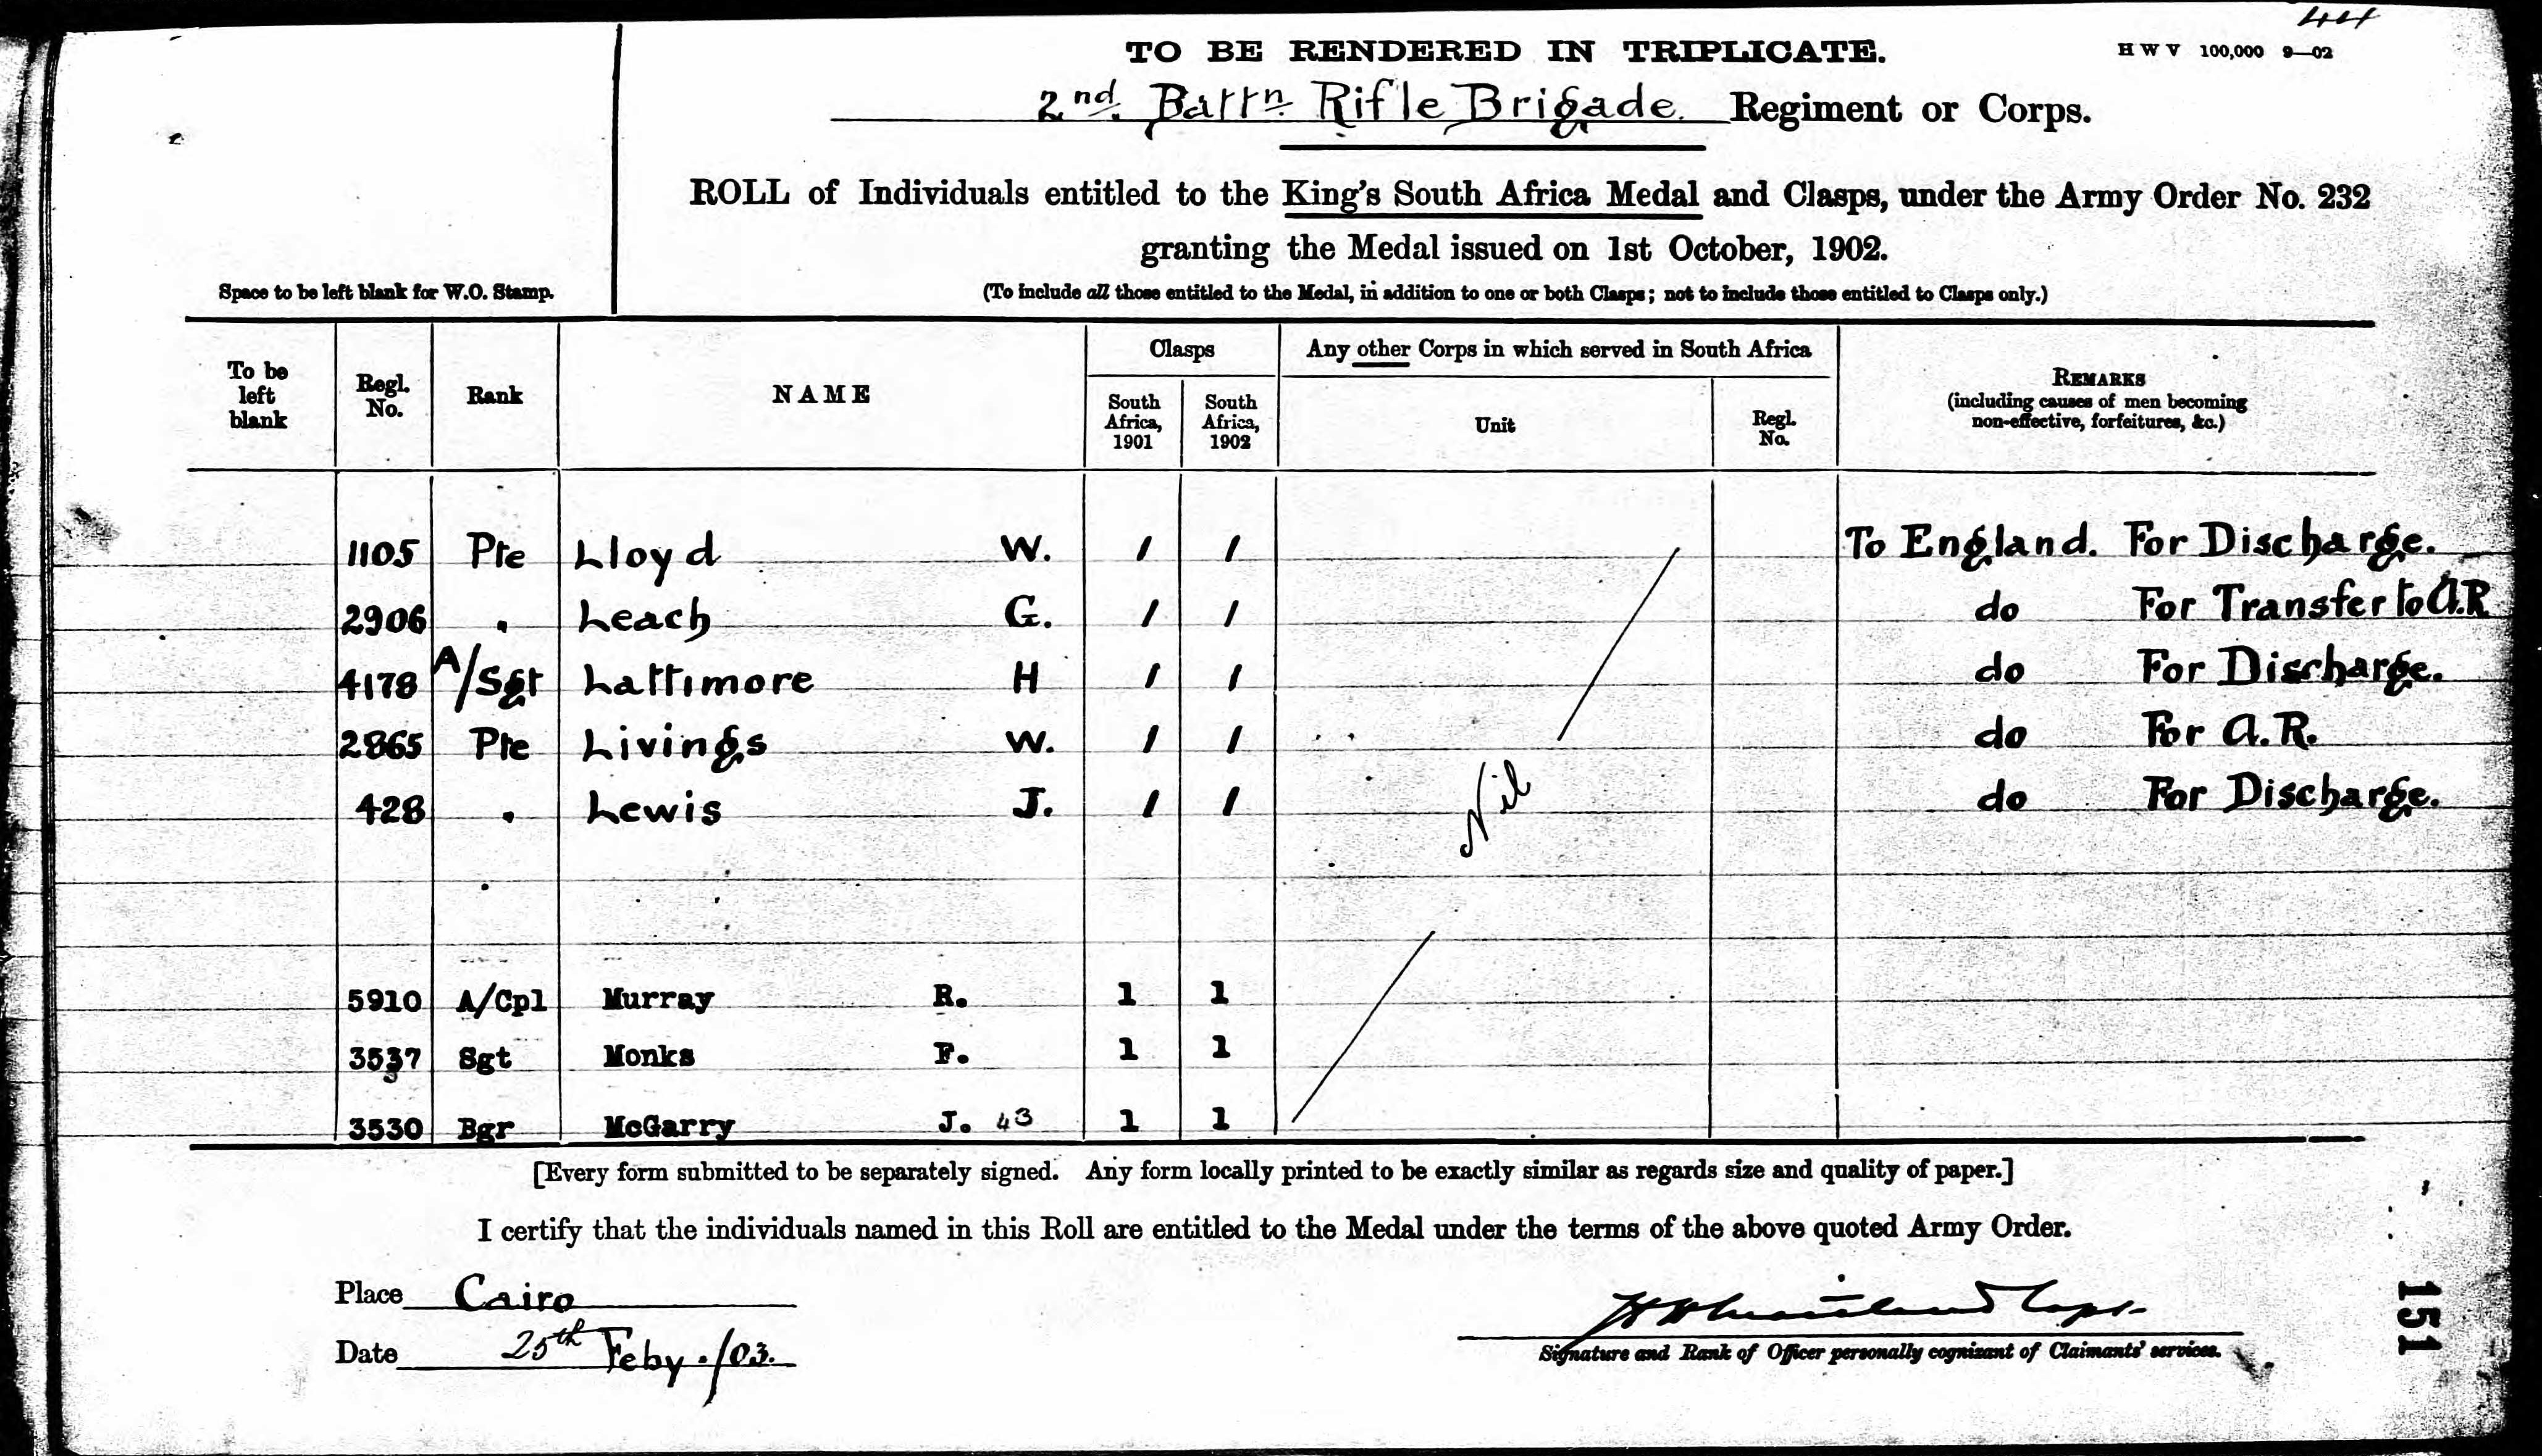 44
TO BE RENDERED IN TRIPLICATE.
H W V 100,000 9—02
2nd. Battn Rifle Brigade. Regiment or Corps.
ROLL of Individuals entitled to the King's South Africa Medal and Clasps, under the Army Order No. 232
granting the Medal issued on 1st October, 1902.
Space to be left blank for W.O. Stamp.
(To include all those entitled to the Medal, in addition to one or both Clasps; not to include those entitled to Clasps only.)
To be left blank
Regl. No.
Rank
NAME
Clasps
South Africa, 1901
South Africa, 1902
Any other Corps in which served in South Africa
Unit
Regl. No.
REMARKS
(including causes of men becoming
non-effective, forfeitures, &c.)
1105 Pte Lloyd W. 1 1 To England. For Discharge.
2906 " Leach G. 1 1 do For Transfer to A.R
4178 A/Sgt Lattimore H 1 1 do For Discharge.
2865 Pte Livings W. 1 1 do For A.R.
428 " Lewis J. 1 1 do For Discharge.
Nil
5910 A/Cpl Murray R. 1 1
3537 Sgt Monks F. 1 1
3530 Bgr McGarry J. 43 1 1
[Every form submitted to be separately signed. Any form locally printed to be exactly similar as regards size and quality of paper.]
I certify that the individuals named in this Roll are entitled to the Medal under the terms of the above quoted Army Order.
Place Cairo
Date 25th Feby./03.
Capt.
Signature and Rank of Officer personally cognizant of Claimants' services.
151